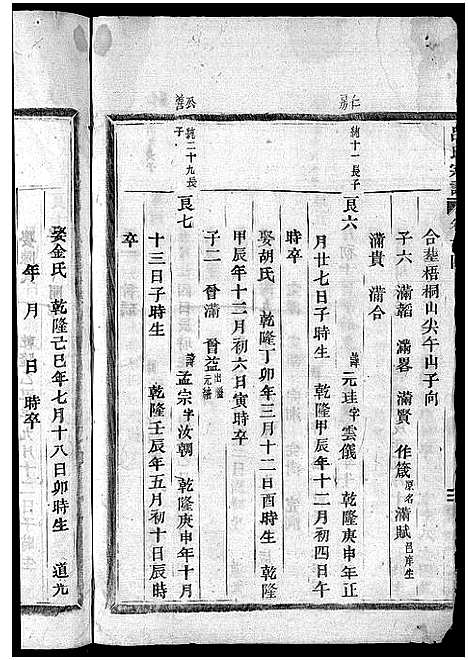 合墓梧桐山尖午山子向
子六 滿韜 滿畧 滿賢 作箴原名滿賦邑庠生
滿貴 滿合
仁房
純十一長子 良六 諱元珪字雲儀 乾隆庚申年正
月廿七日子時生 乾隆甲辰年十二月初四日午
時卒
娶胡氏 乾隆丁卯年三月十二日酉時生 乾隆
甲辰年十二月初六日寅時卒
子二 晉滿 晉益出繼元禧
純二十九長子 良七 諱孟宗字汝朝 乾隆庚申年十月
十三日子時生 乾隆壬辰年五月初十日辰時
卒
娶金氏 乾隆己巳年七月十八日卯時生 道光
年 月 日 時卒